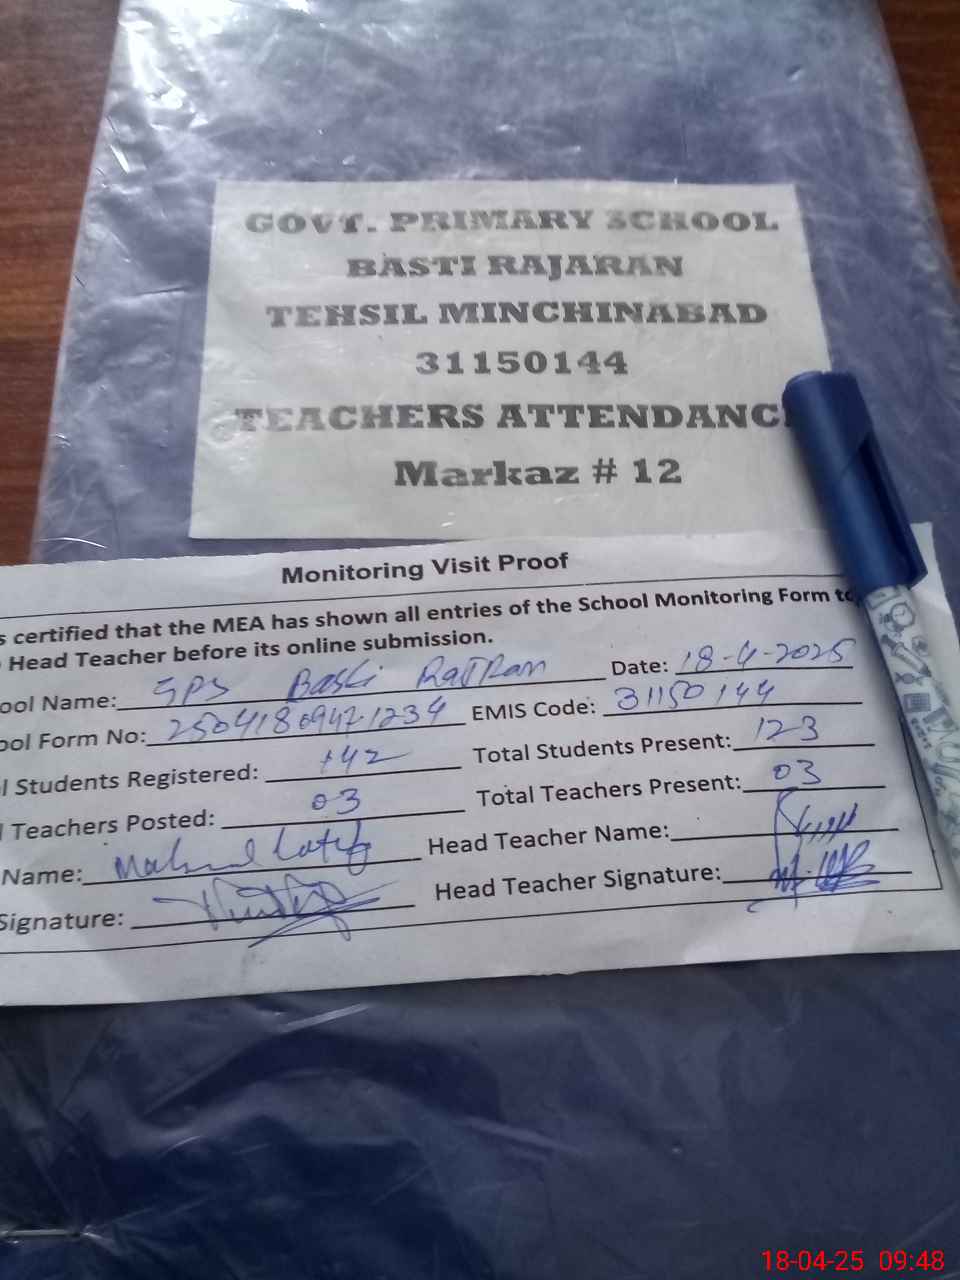 GOVT. PRIMARY SCHOOL
BASTI RAJARAN
TEHSIL MINCHINABAD
31150144
TEACHERS ATTENDANC
Markaz # 12
Monitoring Visit Proof
s certified that the MEA has shown all entries of the School Monitoring Form to
Head Teacher before its online submission.
ool Name: GPS Basti RajRan Date: 18-4-2025
ool Form No: 25041809421234 EMIS Code: 31150144
l Students Registered: 142 Total Students Present: 123
Teachers Posted: 03 Total Teachers Present: 03
Name: Latif Head Teacher Name:
Signature: Head Teacher Signature:
18-04-25 09:48